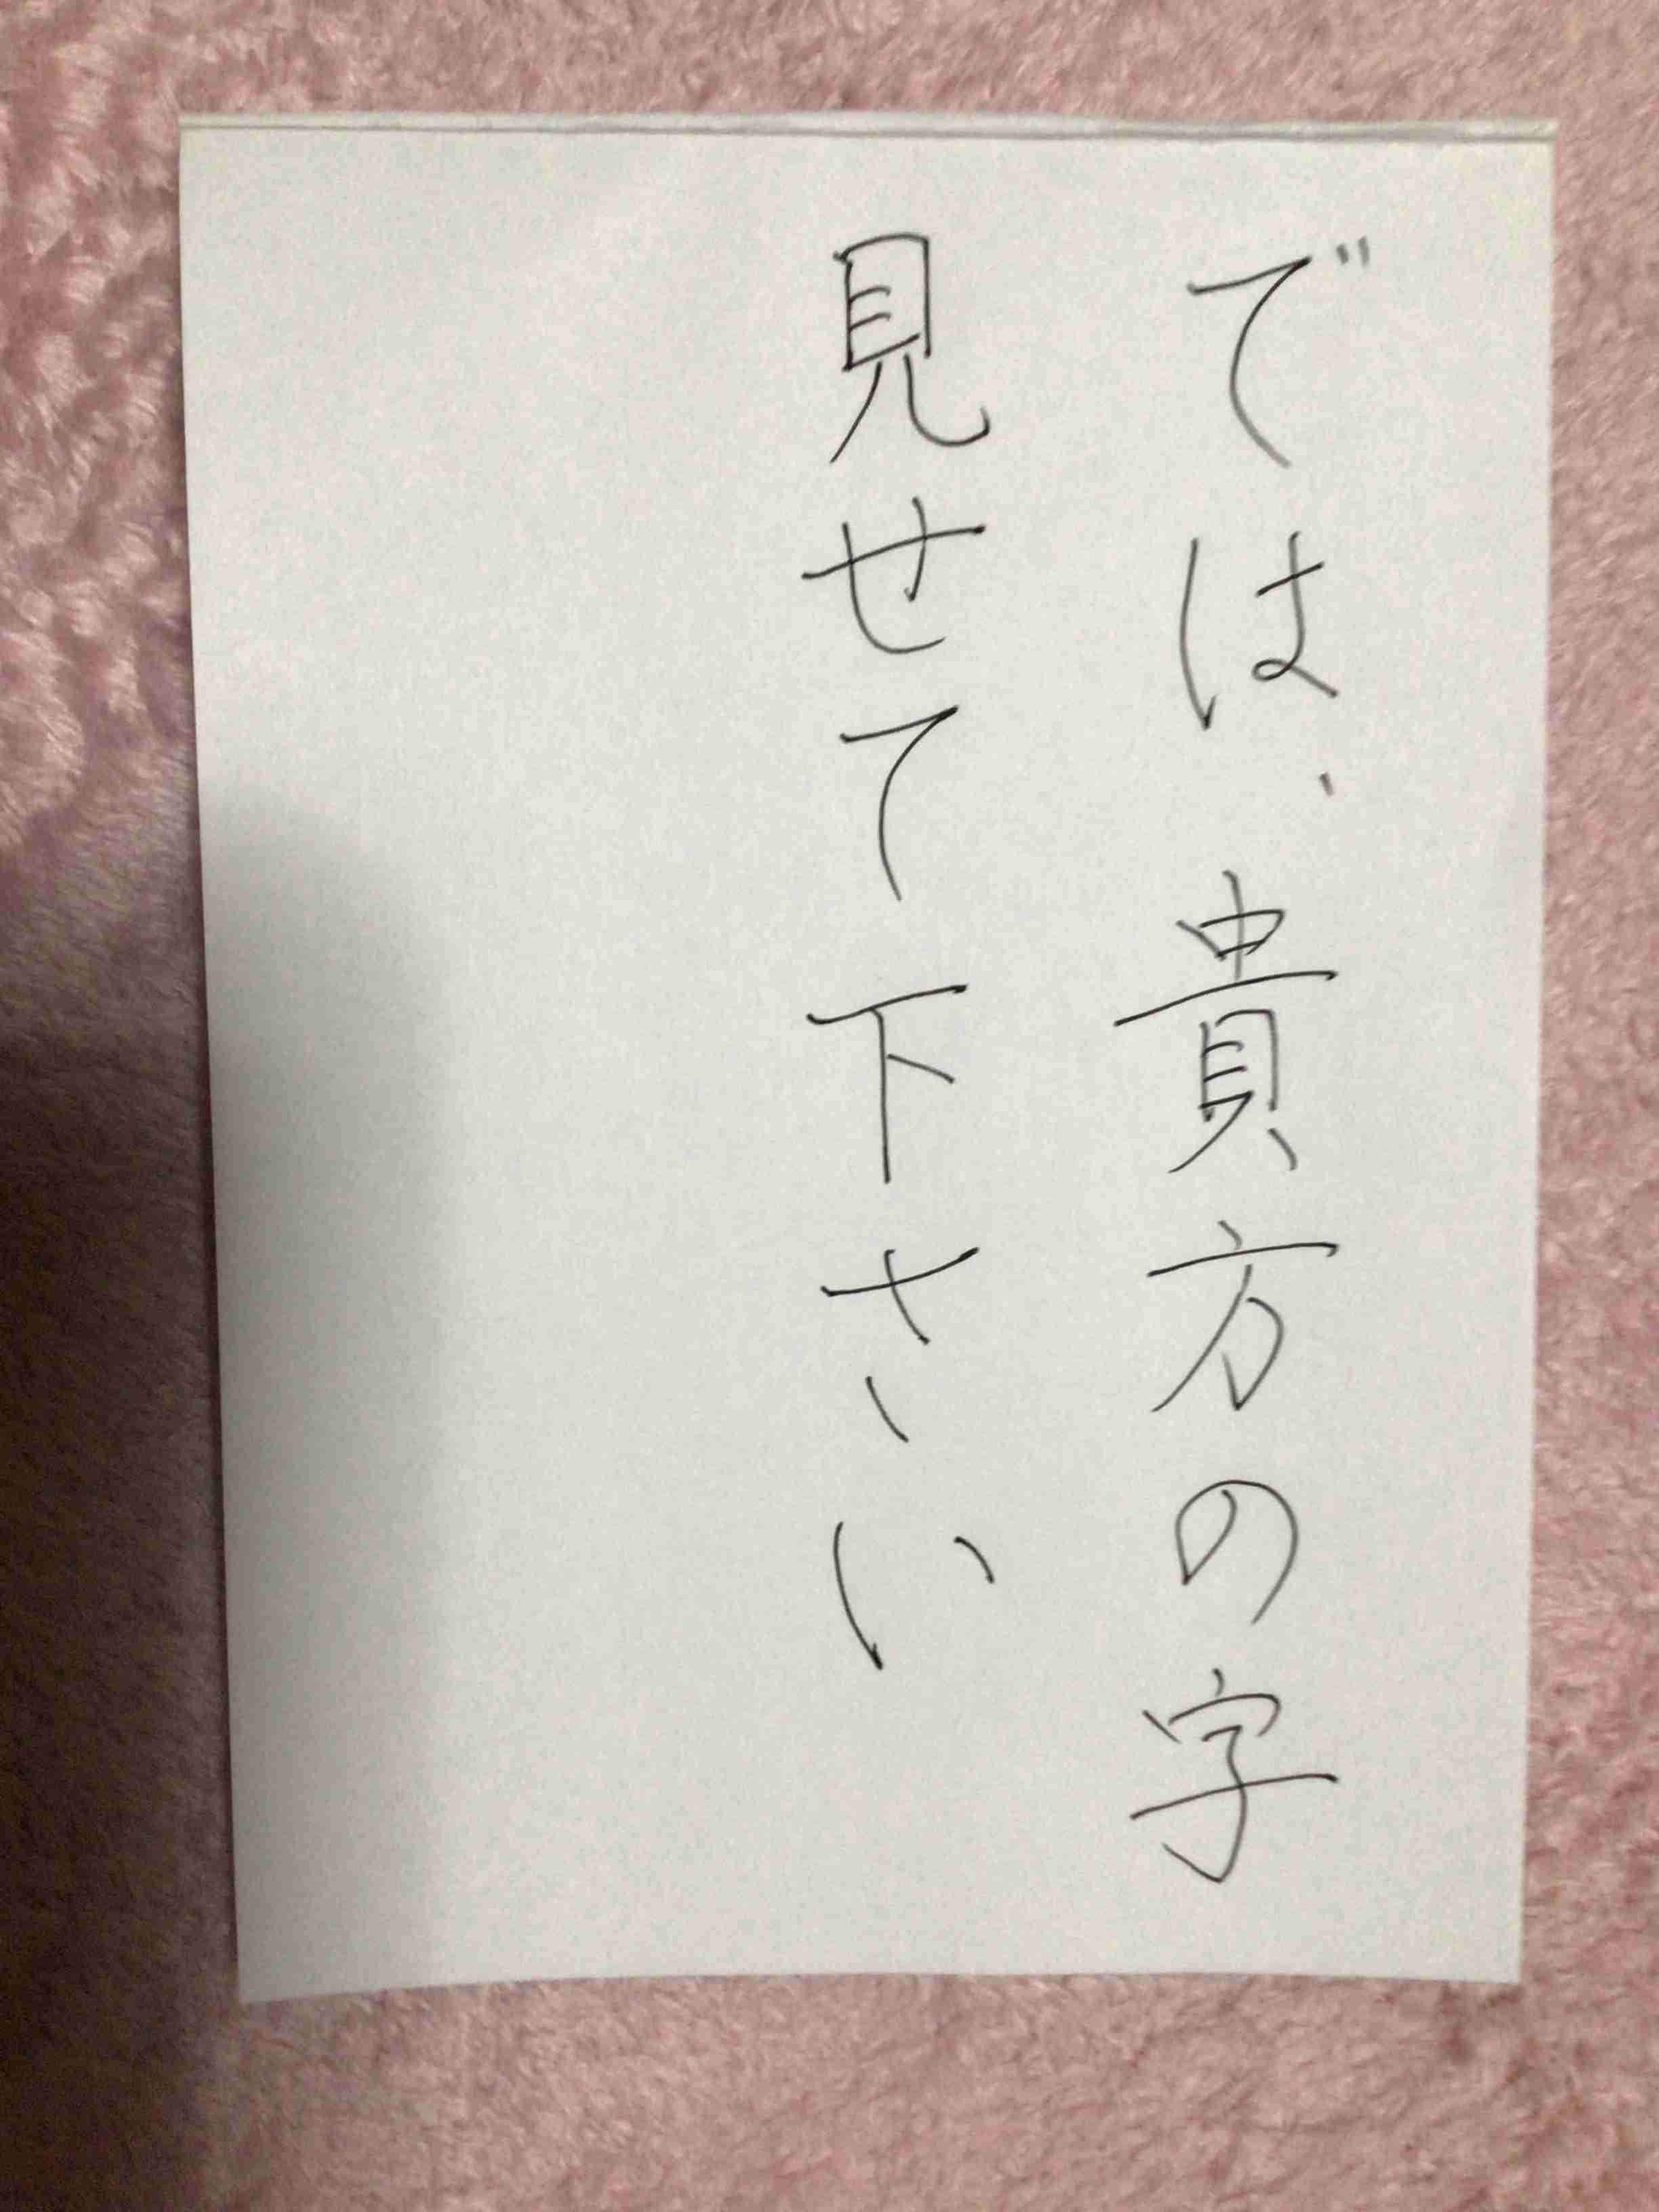 では、貴方の字
見せて下さい